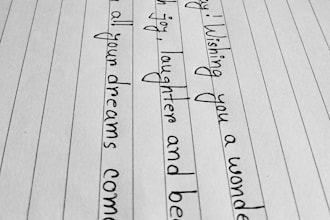 y! Wishing you a wonde
h joy, laughter and be
all your dreams come